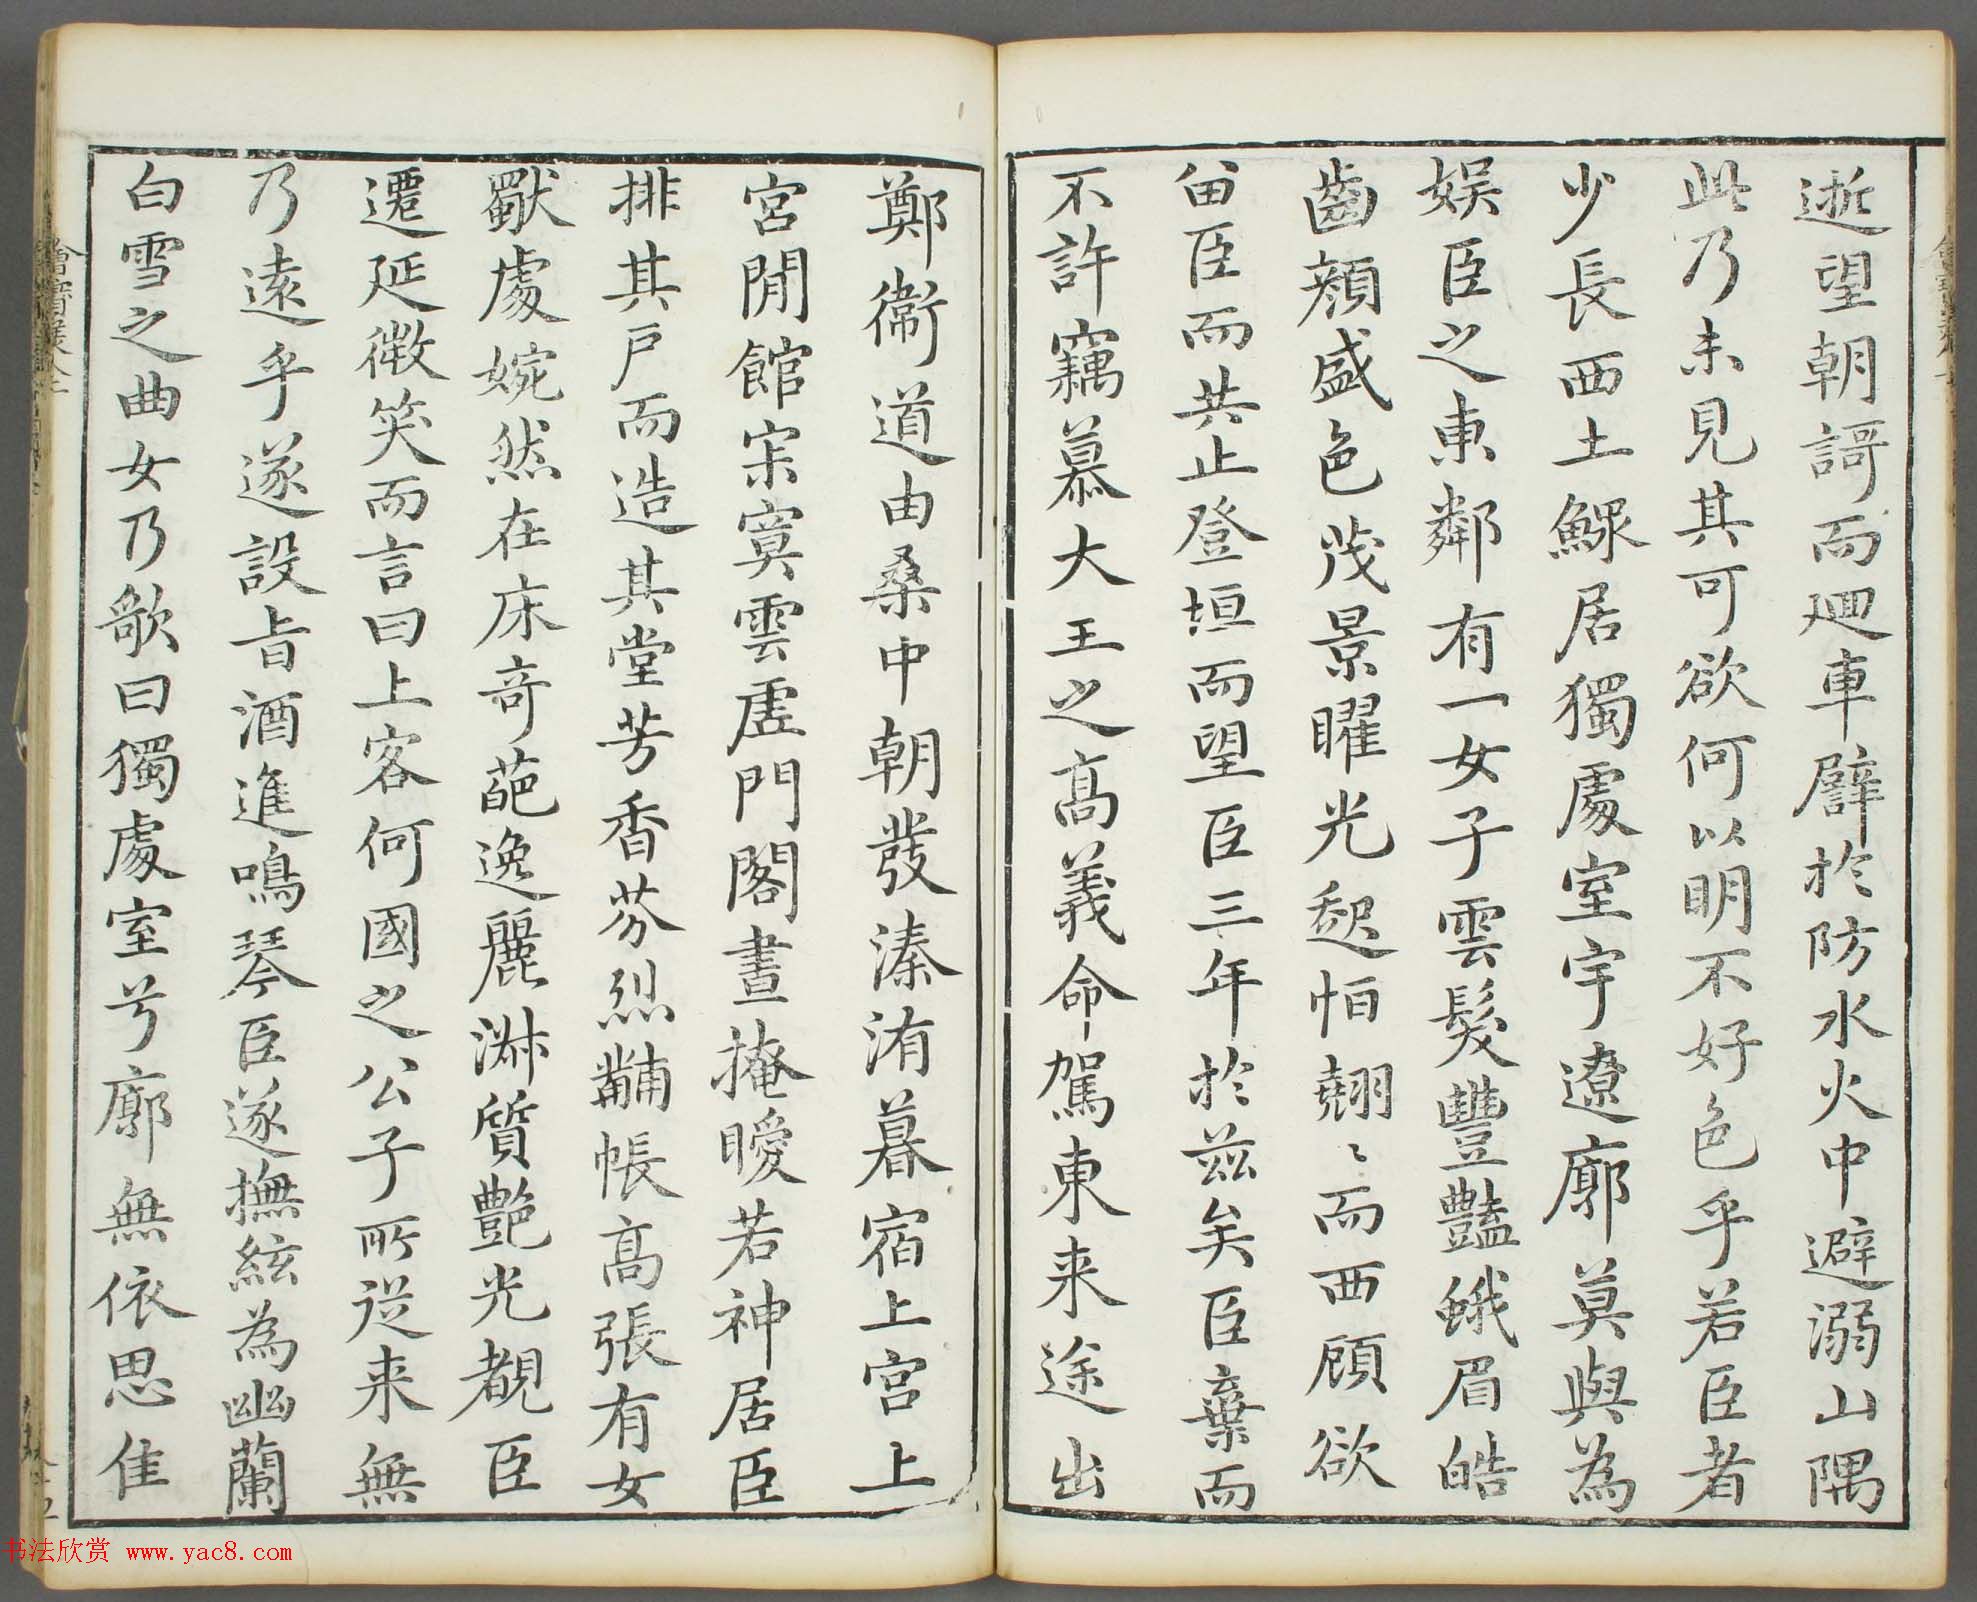 逝望朝謌而廻車譬於防水火中避溺山隅
此乃未見其可欲何以明不好色乎若臣者
少長西土鰥居獨處室宇遼廓莫與為
娛臣之東鄰有一女子雲髮豐豔蛾眉皓
齒顏盛色茂景曜光起恒翹〻而西顧欲
畱臣而共止登垣而望臣三年於茲矣臣棄而
不許竊慕大王之高義命駕東来途出
鄭衞道由桑中朝發溱洧暮宿上宮上
宮閒館寂寞雲虛門閣晝掩曖若神居臣
排其戶而造其堂芳香芬烈黼帳高張有女
獨處婉然在床奇葩逸麗淋質艷光覩臣
遷延微笑而言曰上客何國之公子所従来無
乃遠乎遂設旨酒進鳴琴臣遂撫絃為幽蘭
白雪之曲女乃歌曰獨處室兮廓無依思佳
书法欣赏 www.yac8.com